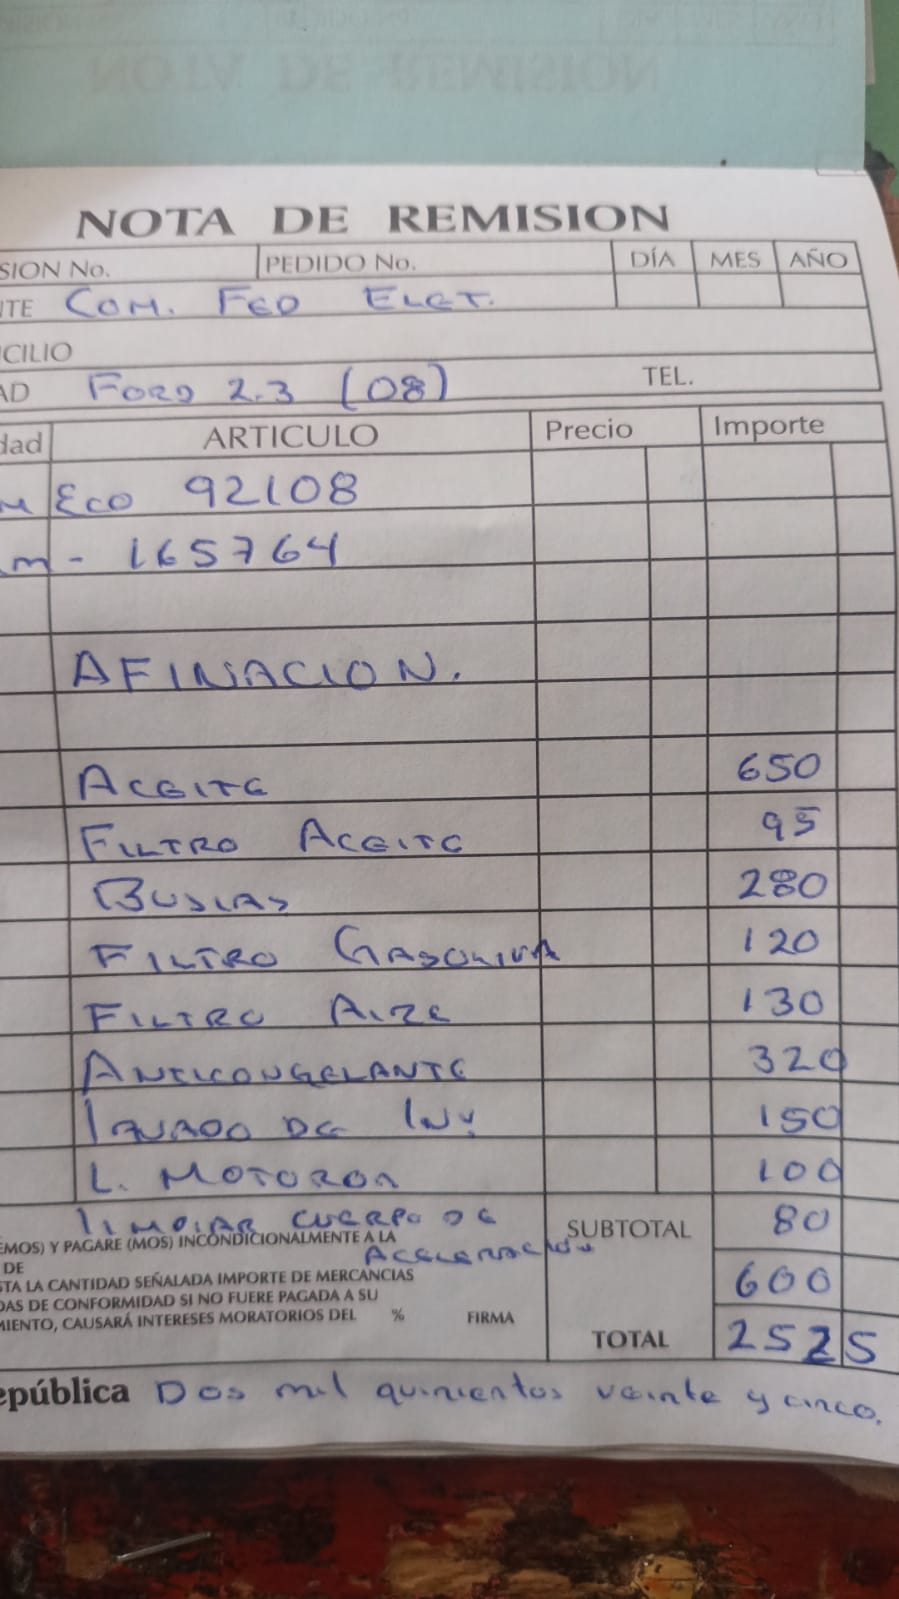 NOTA DE REMISION
SION No. PEDIDO No. DÍA MES AÑO
NTE COM. FED ELET.
CILIO
AD FORD 2.3 (08) TEL.
dad ARTICULO Precio Importe
M ECO 92108
m - 165764
AFINACION.
ACEITE 650
FILTRO ACEITE 95
BUJIAS 280
FILTRO GASOLINA 120
FILTRO AIRE 130
ANTICONGELANTE 320
LAVADO DE INY. 150
L. MOTOROR 100
LIMPIAR CUERPO DE 80
ACELERACION
SUBTOTAL
EMOS) Y PAGARE (MOS) INCONDICIONALMENTE A LA
DE
STA LA CANTIDAD SEÑALADA IMPORTE DE MERCANCIAS 600
DAS DE CONFORMIDAD SI NO FUERE PAGADA A SU
MIENTO, CAUSARÁ INTERESES MORATORIOS DEL % FIRMA
TOTAL 2525
epública Dos mil quinientos veinte y cinco.